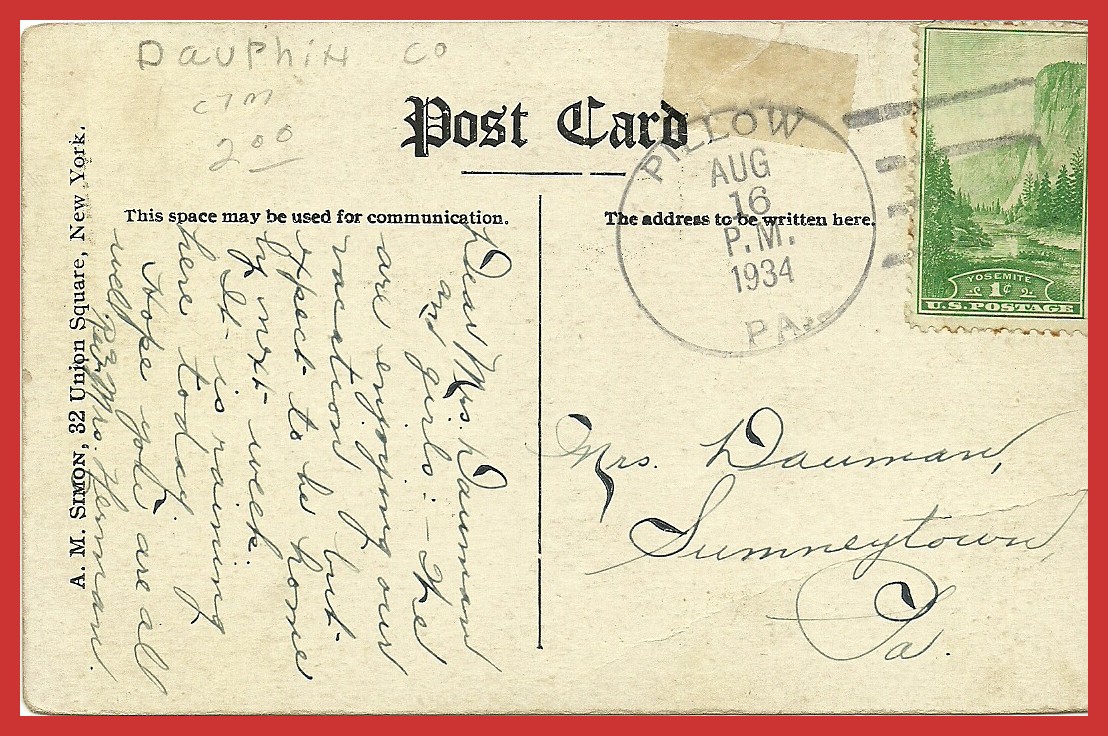 Dauphin Co
CTM
2.00
Post Card
This space may be used for communication.
The address to be written here.
A. M. SIMON, 32 Union Square, New York.
PILLOW
AUG
16
P.M.
1934
PA.
YOSEMITE
1¢
U.S. POSTAGE
Dear Mrs. Dauman
and girls:- We
are enjoying our
vacation but
expect to be home
by next week.
It is raining
here today.
Hope you are all
well.
Rev & Mrs. Herman.
Mrs. Dauman,
Sumneytown,
Pa.